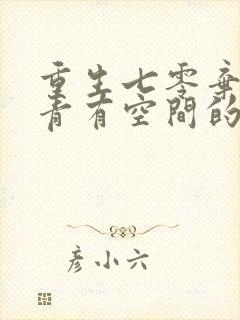 重生七零棄
青有空間的
彥小六